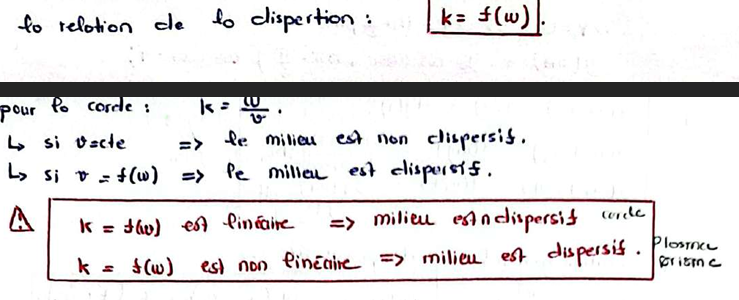 la relation de la dispertion : k = f(ω).
pour la corde : k = ω/v.
↳ si v=cte => le milieu est non dispersif.
↳ si v = f(ω) => le milieu est dispersif.
⚠ k = f(ω) est linéaire => milieu est n dispersif corde
k = f(ω) est non linéaire => milieu est dispersif. Plasma
prisme